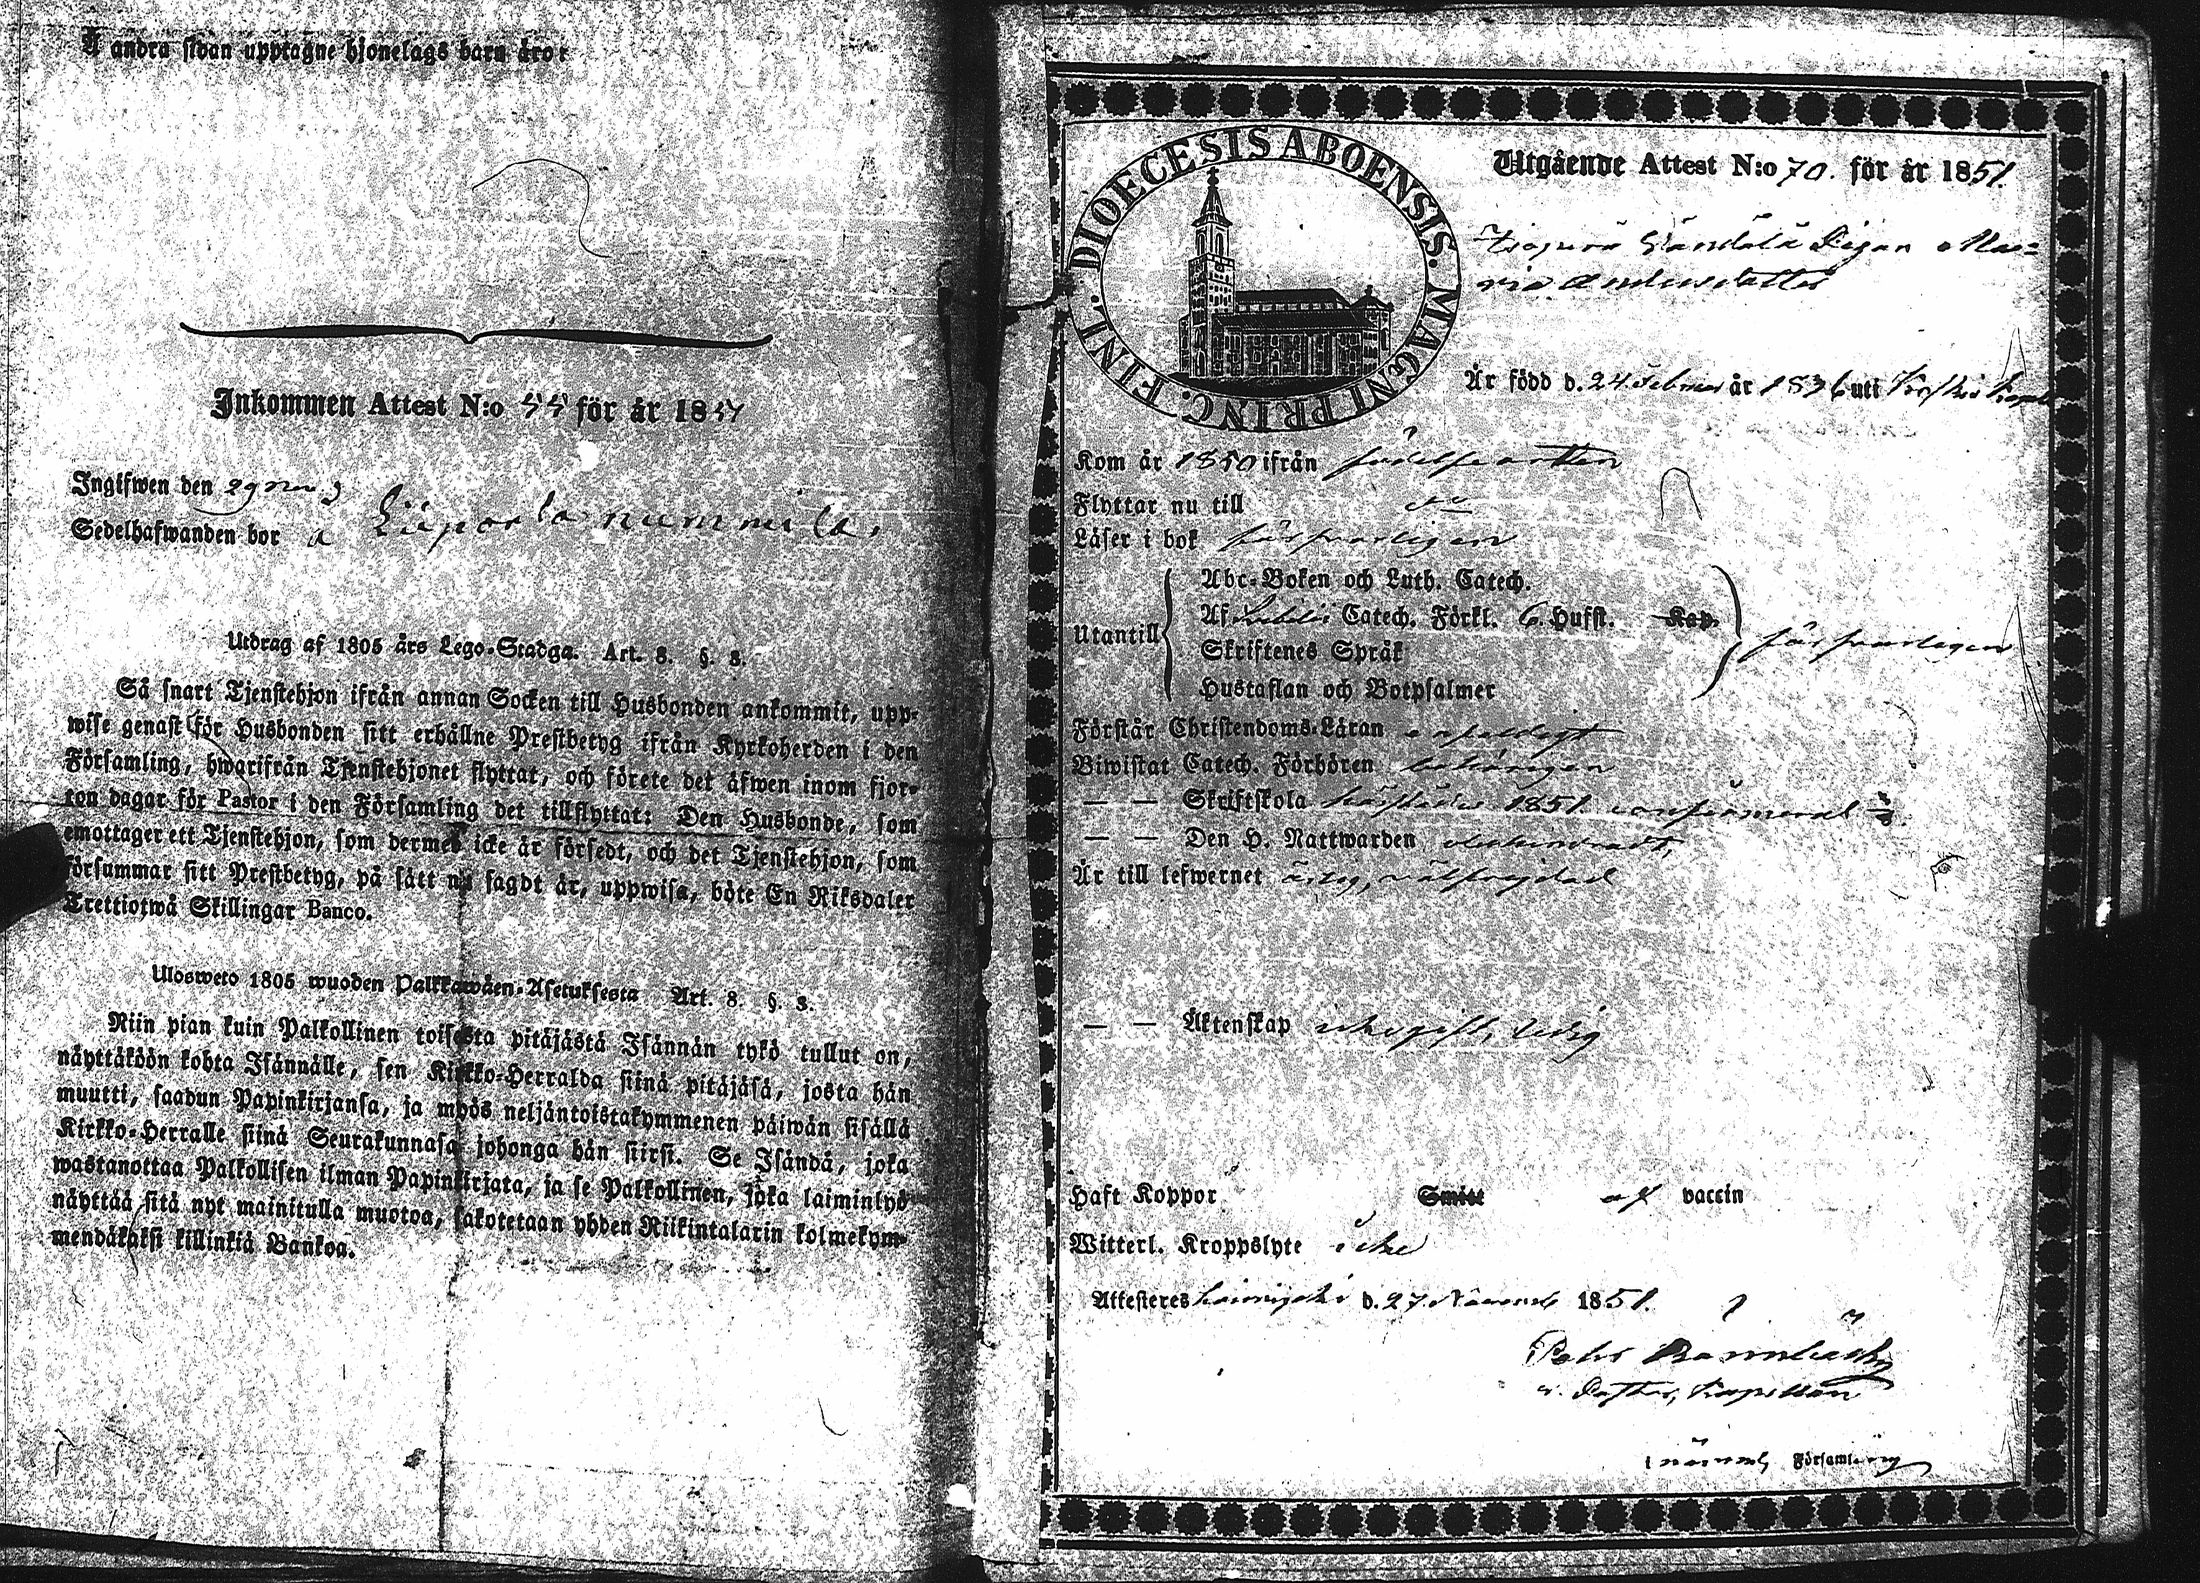 Å andra sidan upptagne hjonelags barn äro:
Inkommen Attest N:o 55 för år 18
Ingifwen den 29 nov
Sedelhafwanden bor
Utdrag af 1805 års Lego-Stadga. Art. 8. §. 3.
Så snart Tjenstehjon ifrån annan Socken till Husbonden ankommit, upp-
wise genast för Husbonden sitt erhållne Prestbetyg ifrån Kyrkoherden i den
Församling, hwarifrån Tjenstehjonet flyttat, och förete det äfwen inom fjor-
ton dagar för Pastor i den Församling det tillflyttat: Den Husbonde, som
emottager ett Tjenstehjon, som dermed icke är försedt, och det Tjenstehjon, som
försummar sitt Prestbetyg, på sätt nu sagdt är, uppwisa, böte En Riksdaler
Trettiotwå Skillingar Banco.
Ulosweto 1805 wuoden Palkkawäen-Asetuksesta Art. 8. §. 3.
Niin pian kuin Palkollinen toisesta pitäjästä Isännän tykö tullut on,
näyttäköön kohta Isännälle, sen Kirkko-Herralda siinä pitäjäsä, josta hän
muutti, saadun Papinkirjansa, ja myös neljäntoistakymmenen päiwän sisällä
Kirkko-Herralle siinä Seurakunnasa johonga hän siirsi. Se Isändä, joka
wastanottaa Palkollisen ilman Papinkirjata, ja se Palkollinen, joka laiminlyö
näyttää sitä nyt mainitulla muotoa, sakotetaan yhden Riikintalarin kolmekym-
mendäkaksi killinkiä Bankoa.
DIOECESIS ABOENSIS. MAGNI PRINC. FINL.
Utgående Attest N:o 70. för år 1851.
Pigan Ma=
ria Andersdotter
Är född d. 24 Februar år 1836 uti
Kom år 1850 ifrån födelseorten
Flyttar nu till do
Läser i bok försvarligen
Abc-Boken och Luth. Catech.
Utantill Af Catech. Förkl. 6. Hufst. Kap. försvarligen
Skriftenes Språk
Hustaflan och Botpsalmer
Förstår Christendoms-Läran enfaldigt
Biwistat Catech. Förhören behörigen
— — Skriftskola 1851 confirmerad
— — Den H. Nattwarden obehindradt,
Är till lefwernet ärlig, välfrejdad
— — Äktenskap ledig
Haft Koppor Smitt af vaccin
Witterl. Kroppslyte icke
Attesteres d. 27 Novemb 1851.
Petr
v. Pastor, Kapellan
Församling